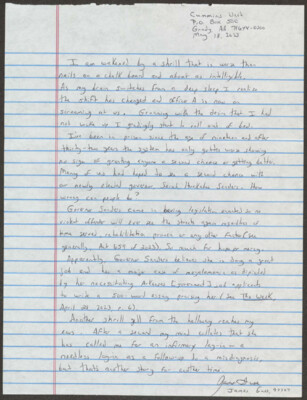 Cummins Unit
P.O. Box 500
Grady, AR 71644-0500
May 18, 2023
I am awakened by a shrill that is worse than
nails on a chalk board and about as intelligible.
As my brain surfaces from a deep sleep I realize
the shift has changed and officer A is now on
screaming at us. Groaning with the desire that I had
not woke up I grudgingly start to roll out of bed.
I've been in prison since the age of nineteen and after
thirty-two years the system has only gotten worse showing
no sign of granting anyone a second chance or getting better.
Many of us had hoped to see a second chance with
our newly elected governor Sarah Huckabee Sanders. How
wrong can people be?
Governor Sanders came in being legislation
time served, rehabilitation, process or any other factor (see
generally, Act 659 of 2023). So much for human mercy.
Apparently, Governor Sanders believes she is doing a great
job and has a major case of megalomania as depicted
by her necessitating Arkansas Government job applicants
to write a 500-word essay praising her (see The Week,
April 28, 2023 p. 6).
Another shrill yell from the hallway reaches my
ears. After a second my mind collates that she
has called me for an infirmary log-in — a
needless log-in as a follow-up to a misdiagnosis,
but that's another story for another time.
James